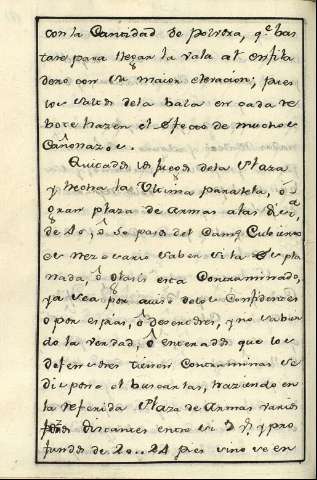 con la Cantidad de polvora, q.e bas
tare para llegar la vala al enfila
dero con su maior elevacion; pues
los saltos dela bala en cada re
bote hazen el efecto de muchos
Cañonazos.
Quitados los fuegos dela Plaza
y hecha la Ultima paralela, ô
gran plaza de Armas a las dis.as
de 40, ô 50 pasos del Cam.o Cubierto
es nezesario saber si la Explá
nada, ô glasis esta Contraminado,
ya sea por aviso delos Confidentes
o por espias, ô desertores, y no sabien
do la verdad, ô enterados que los
defensores tienen Contraminas se
dispone el buscarlas, haziendo en
la referida Plaza de Armas varios
pozos distantes entre si y pro
fundos de 20.. 24 pies sino se en